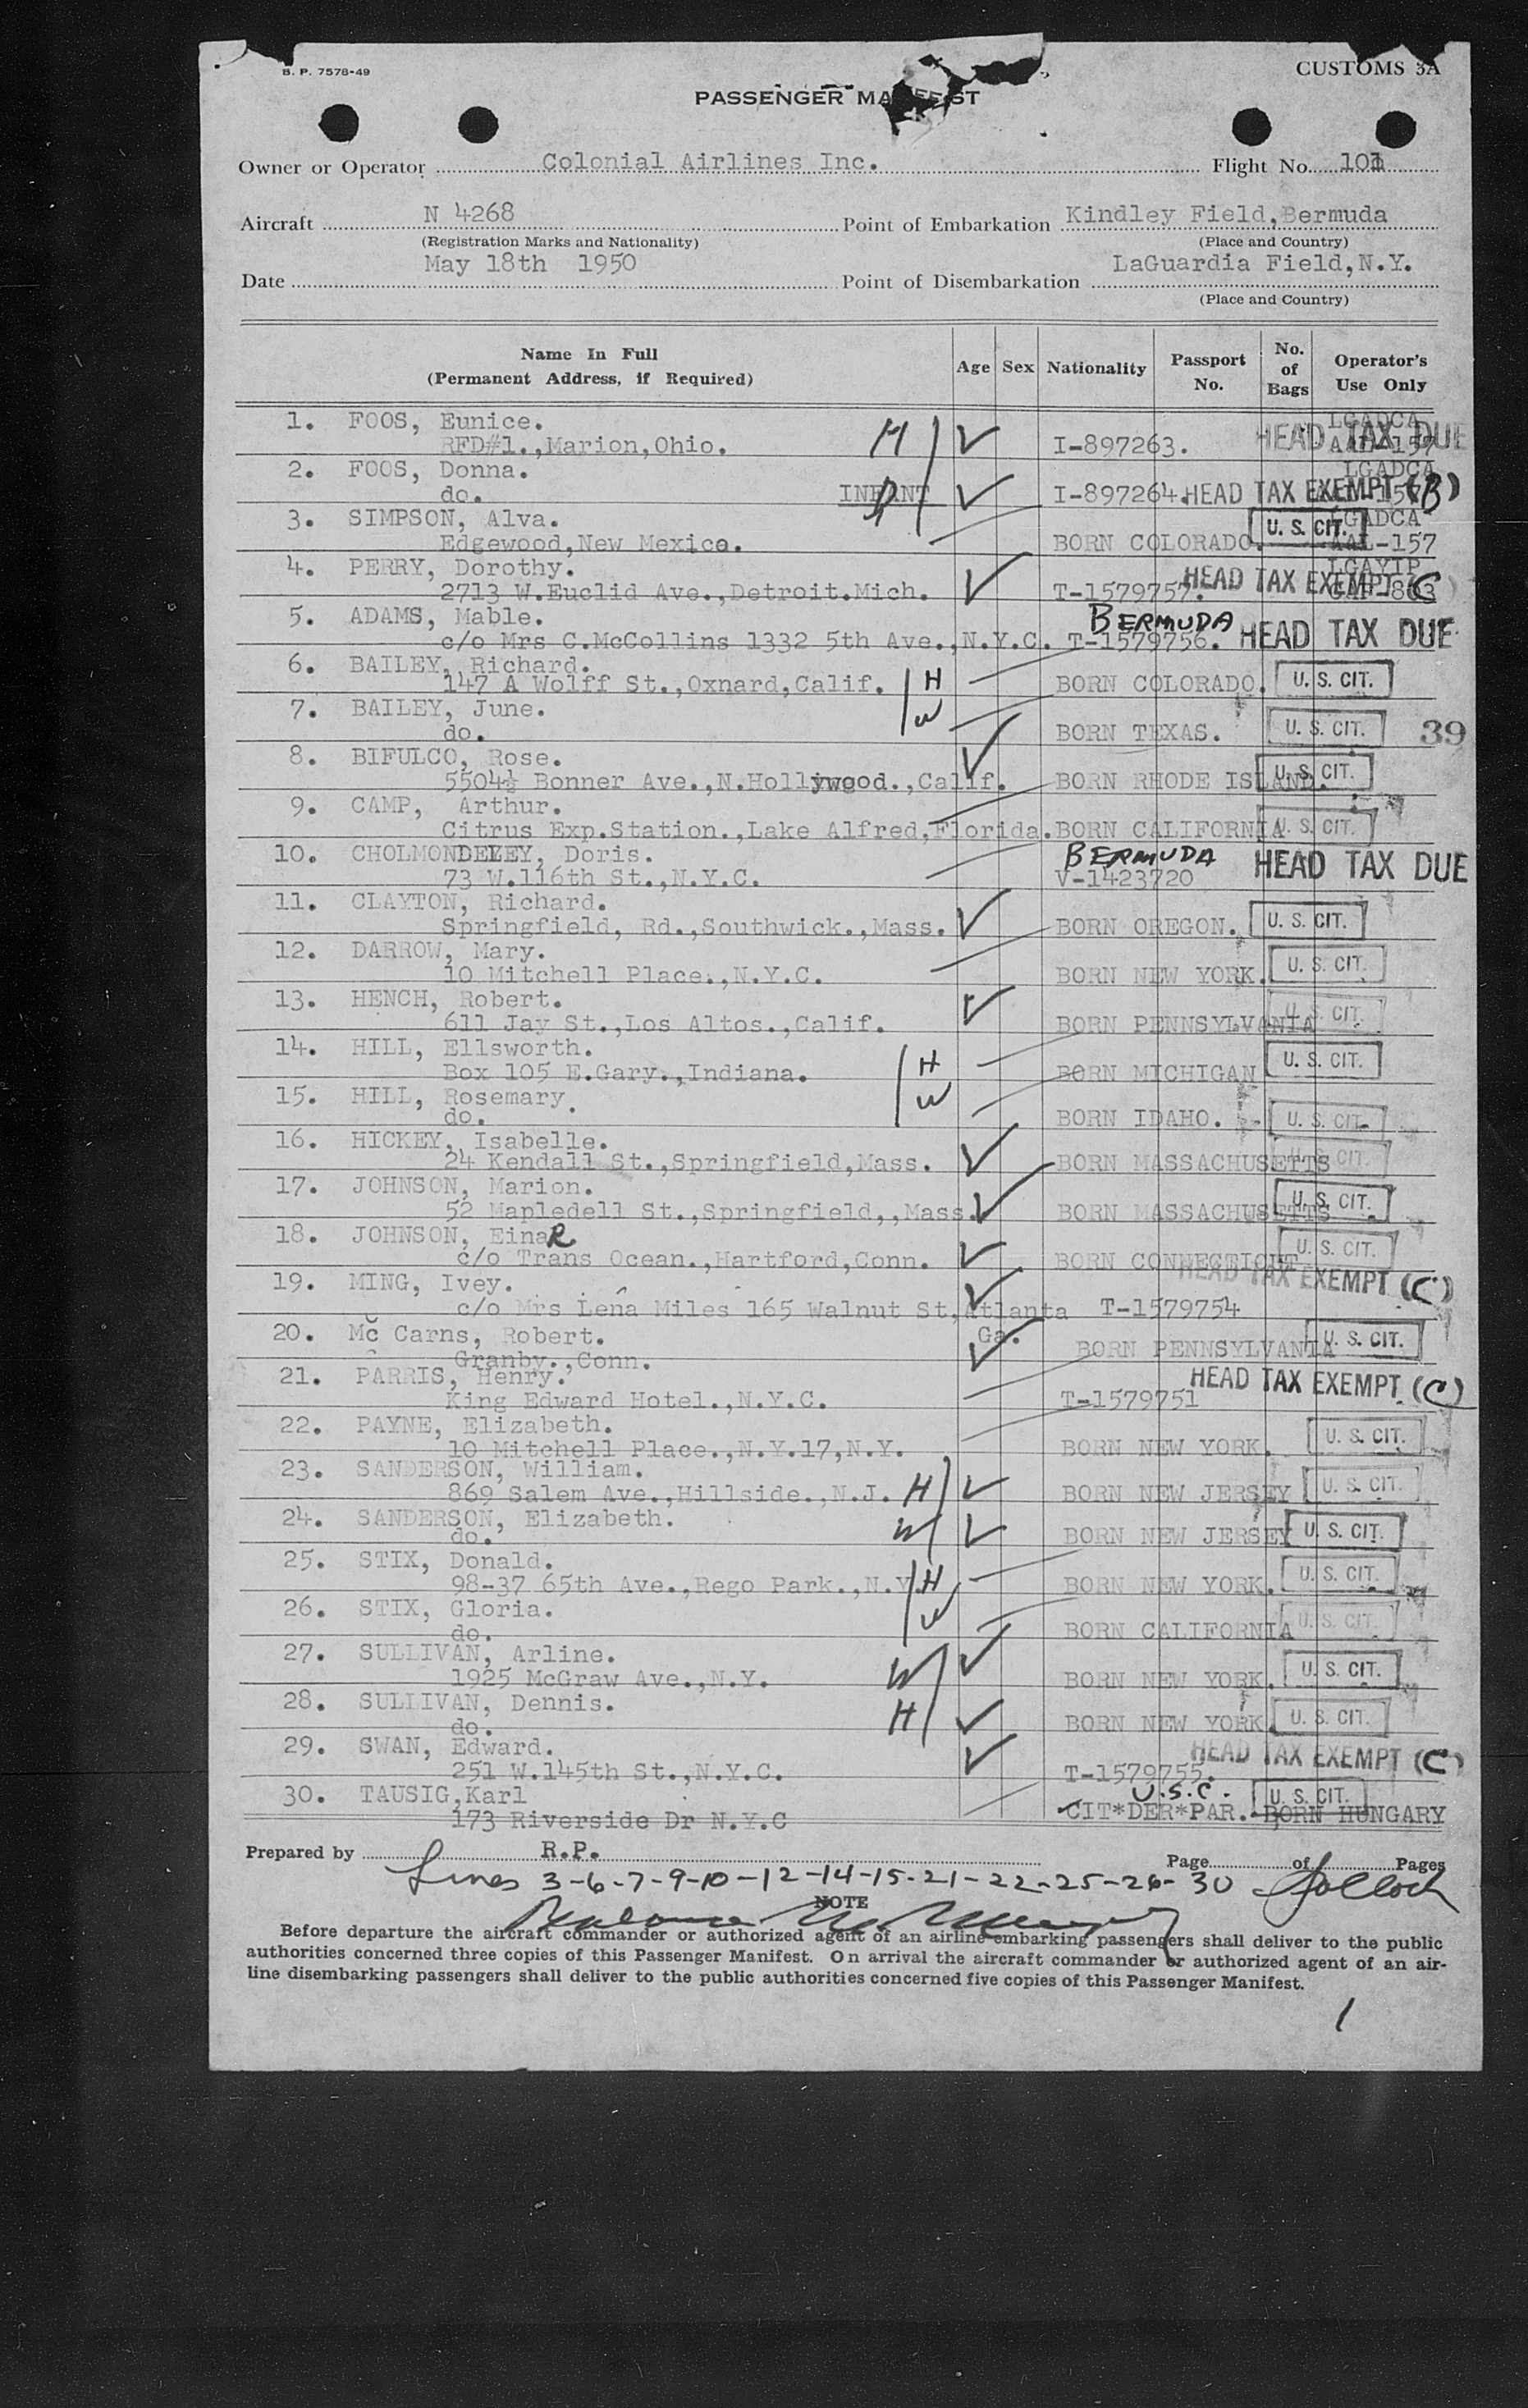 B. P. 7578-49
CUSTOMS 3A
PASSENGER MANIFEST
Owner or Operator Colonial Airlines Inc. Flight No. 101
Aircraft N 4268 Point of Embarkation Kindley Field,Bermuda
(Registration Marks and Nationality) (Place and Country)
Date May 18th 1950 Point of Disembarkation LaGuardia Field,N.Y.
(Place and Country)
Name In Full (Permanent Address, if Required) Age Sex Nationality Passport No. No. of Bags Operator's Use Only
1. FOOS, Eunice. LGADCA
RFD#1.,Marion,Ohio. M I-897263. HEAD TAX DUE AAL-157
2. FOOS, Donna. LGADCA
do. INFANT I-897264. HEAD TAX EXEMPT (B)
3. SIMPSON, Alva. U. S. CIT. LGADCA
Edgewood,New Mexico. BORN COLORADO. AAL-157
4. PERRY, Dorothy. LGAYIP
2713 W.Euclid Ave.,Detroit.Mich. T-1579757. HEAD TAX EXEMPT (C)
5. ADAMS, Mable. BERMUDA
c/o Mrs C.McCollins 1332 5th Ave.,N.Y.C. T-1579756. HEAD TAX DUE
6. BAILEY, Richard.
147 A Wolff St.,Oxnard,Calif. H BORN COLORADO. U. S. CIT.
7. BAILEY, June. W
do. BORN TEXAS. U. S. CIT. 39
8. BIFULCO, Rose.
5504½ Bonner Ave.,N.Hollywood.,Calif. BORN RHODE ISLAND. U. S. CIT.
9. CAMP, Arthur.
Citrus Exp.Station.,Lake Alfred,Florida. BORN CALIFORNIA U. S. CIT.
10. CHOLMONDELEY, Doris. BERMUDA HEAD TAX DUE
73 W.116th St.,N.Y.C. V-1423720
11. CLAYTON, Richard.
Springfield, Rd.,Southwick.,Mass. BORN OREGON. U. S. CIT.
12. DARROW, Mary.
10 Mitchell Place.,N.Y.C. BORN NEW YORK. U. S. CIT.
13. HENCH, Robert.
611 Jay St.,Los Altos.,Calif. BORN PENNSYLVANIA U. S. CIT.
14. HILL, Ellsworth. H
Box 105 E.Gary.,Indiana. BORN MICHIGAN U. S. CIT.
15. HILL, Rosemary. W
do. BORN IDAHO. U. S. CIT.
16. HICKEY, Isabelle.
24 Kendall St.,Springfield,Mass. BORN MASSACHUSETTS U. S. CIT.
17. JOHNSON, Marion.
52 Mapledell St.,Springfield,,Mass. BORN MASSACHUSETTS U. S. CIT.
18. JOHNSON, EinaR
c/o Trans Ocean.,Hartford,Conn. BORN CONNECTICUT U. S. CIT.
19. MING, Ivey. HEAD TAX EXEMPT (C)
c/o Mrs Lena Miles 165 Walnut St,Atlanta T-1579754
20. Mc Carns, Robert. Ga.
Granby.,Conn. BORN PENNSYLVANIA U. S. CIT.
21. PARRIS, Henry. HEAD TAX EXEMPT (C)
King Edward Hotel.,N.Y.C. T-1579751
22. PAYNE, Elizabeth.
10 Mitchell Place.,N.Y.17,N.Y. BORN NEW YORK. U. S. CIT.
23. SANDERSON, William.
869 Salem Ave.,Hillside.,N.J. H BORN NEW JERSEY U. S. CIT.
24. SANDERSON, Elizabeth.
do. W BORN NEW JERSEY U. S. CIT.
25. STIX, Donald.
98-37 65th Ave.,Rego Park.,N.Y. H BORN NEW YORK. U. S. CIT.
26. STIX, Gloria. W
do. BORN CALIFORNIA U. S. CIT.
27. SULLIVAN, Arline.
1925 McGraw Ave.,N.Y. W BORN NEW YORK. U. S. CIT.
28. SULLIVAN, Dennis. H
do. BORN NEW YORK. U. S. CIT.
29. SWAN, Edward. HEAD TAX EXEMPT (C)
251 W.145th St.,N.Y.C. T-1579755.
30. TAUSIG,Karl U.S.C. U. S. CIT.
173 Riverside Dr N.Y.C CIT*DER*PAR. BORN HUNGARY
Prepared by R.P. Page of Pages
Lines 3-6-7-9-10-12-14-15-21-22-25-26-30
NOTE
Before departure the aircraft commander or authorized agent of an airline embarking passengers shall deliver to the public
authorities concerned three copies of this Passenger Manifest. On arrival the aircraft commander or authorized agent of an air-
line disembarking passengers shall deliver to the public authorities concerned five copies of this Passenger Manifest.
1